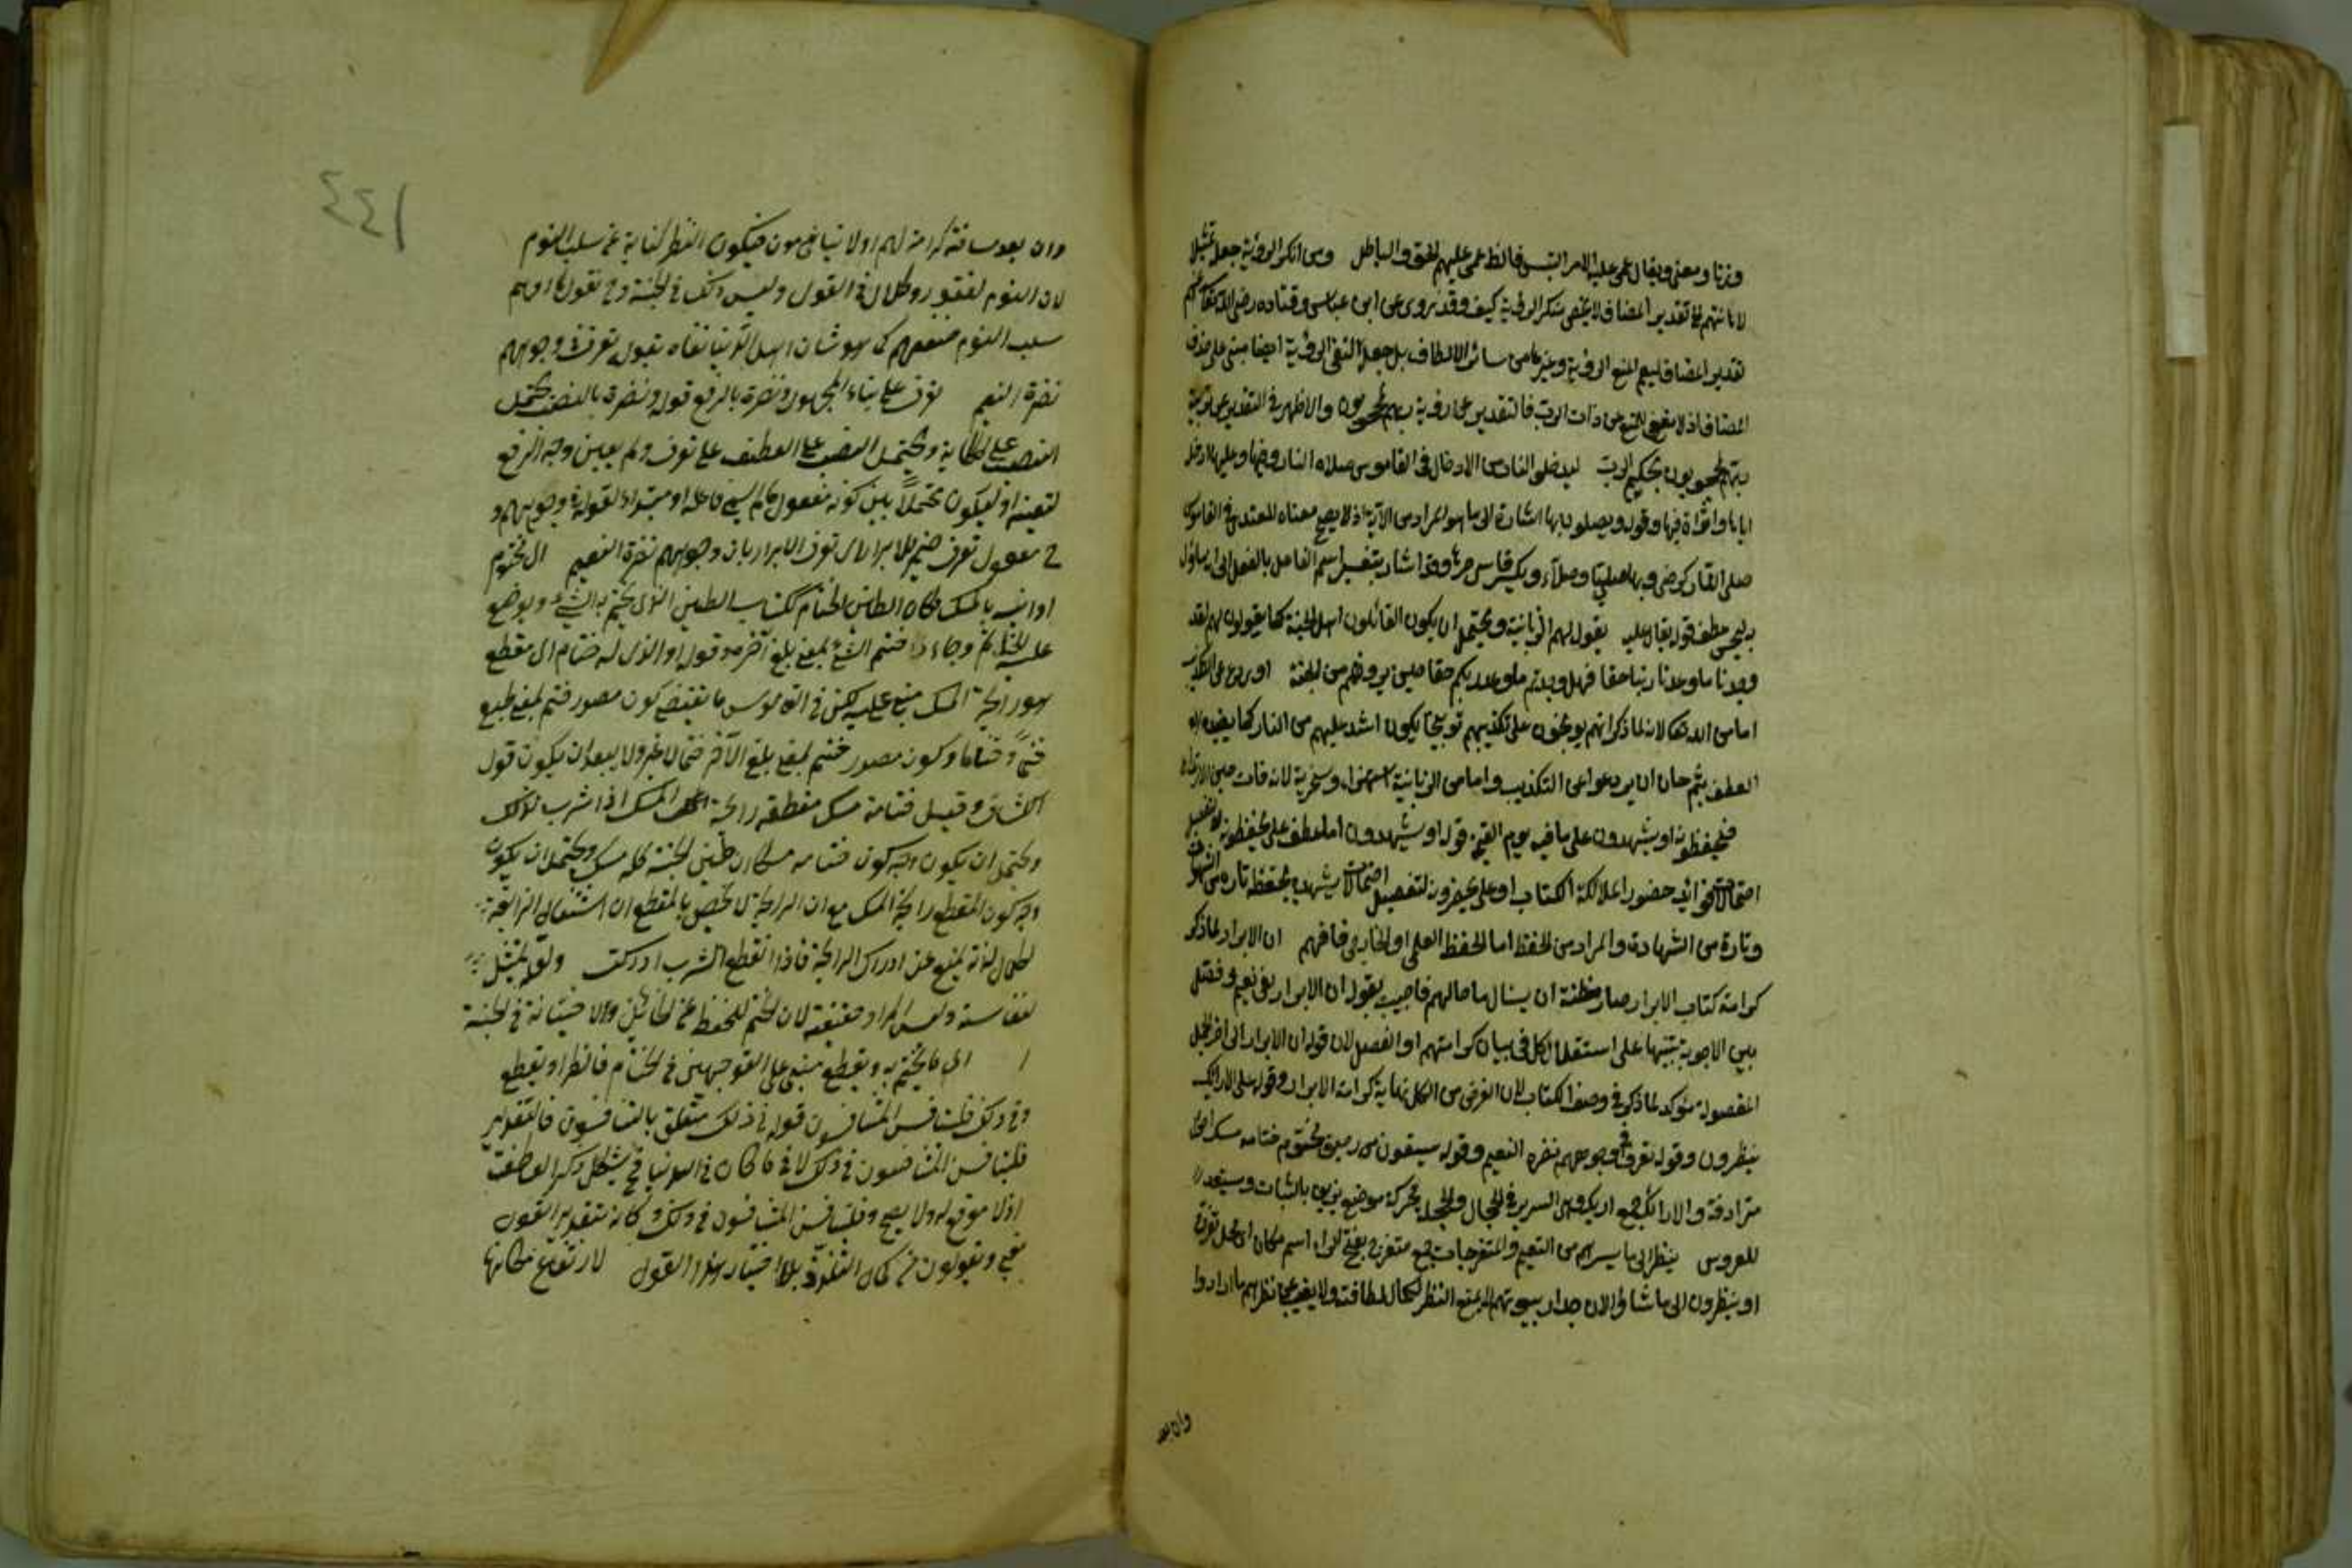 وزنا ومعنى ويقال عمى عليه الامر التبس فالط عمى عليهم الحق والباطل ومن انكر الرؤية جعله تمثيلا
لاهانتهم تقدير المضاف لا يخفى منكر الرؤية كيف وقد روى عن ابن عباس وقتاده رضى الله
تقدير المضاف ليعم المنع الرؤية وغيرها من سائر الالطاف بل جعله النفى الرؤية ايضا مبنى على حذف
المضاف اذ لا معنى للمنع من ذات الرب فالتقدير عن رؤية ربهم لمحجوبون والاظهر فى التقدير عن
ربهم لمحجوبون بحكم الرب ليدخلون النار من الادخال فى القاموس صلاه النار وفيها وعليها ادخله
اياها واثواه فيها وقوله ويصلون بها اشارة الى ما هو المراد من الآية اذ لا يصح معناه المتعدى فى القاموس
صلى النار كرضى وبها صليا وصلاء ويكسر قاسى حرها وقد اشار بتفسير اسم الفاعل بالفعل الى ان
عطف قوله يقال عليه يقول لهم الزبانية ويحتمل ان يكون القائلون اهل الجنة كما يقولون لهم لقد
وجدنا ما وعدنا ربنا حقا فهل وجدتم ما وعد ربكم حقا حين يرونهم من الجنة او ردع عن التكذيب
اما من الله تعالى لانه لما ذكر انهم يوبخون على تكذيبهم توبيخا يكون اشد عليهم من النار كما يفيده
العطف بثم حان ان يردعوا عن التكذيب واما من الزبانية استهزاء وسخرية لانه فات حين الارتداع
فيحفظونه او يشهدون على ما فيه يوم القيمة قوله او يشهدون اما عطف على يحفظونه
حضور الملائكة الكتاب او على يحضرون لتفصيل يشهده بحفظه تارة من
وتارة من الشهادة والمراد من الحفظ اما الحفظ العلمى او الخارجى فافهم ان الابرار لما ذكر
كرامة كتاب الابرار صار مظنة ان يسال ما حالهم فاجيب بقوله ان الابرار لفى نعيم وفصل
بين الاجوبة تنبيها على استقلال الكل فى بيان كرامتهم او الفصل لان قوله ان الابرار الى آخر الجمل
المفصولة مؤكد لما ذكر فى وصف الكتاب لان الغرض من الكل نهاية كرامة الابرار وقوله على الارائك
ينظرون وقوله تعرف فى وجوههم نضرة النعيم وقوله يسقون من رحيق مختوم ختامه مسك
مترادفة والارائك جمع اريكة وهى السرير فى الحجال والحجلة محركة موضع يزين بالثياب والستور
للعروس ينظر الى ما يسرهم من النعيم والمتفرجات جمع متفرج بفتح الراء اسم مكان اى محل
او ينظرون الى ما شاؤا لان جدار بيوتهم لا يمنع النظر لكمال لطافته ولا يغيب عن نظرهم ما ارادوا
وان بعد
٤٤١
وان بعد مسافته كرامة لهم او لا ينامون فيكون النظر كناية عن سلب النوم
لان النوم لفتور وكلال فى القوى وليس ذلك فى الجنة
سلب النوم كما هو شان اهل الدنيا نفاه بقوله تعرف فى وجوههم
نضرة النعيم تعرف على بناء المجهول ونضرة بالرفع قوله ونضرة بالنصب يحتمل
النصب على الحكاية ويحتمل النصب على العطف على تعرف ولم يعين وجه الرفع
لتعينه او ليكون محتملا بين كونه مفعول ما لم يسم فاعله او مبتدأ لقوله فى وجوههم و
مفعول تعرف ضمير للابرار اى تعرف الابرار بان وجوههم نضرة النعيم اى مختوم
اوانيه بالمسك مكان الطين الختام ككتاب الطين الذى يختم به الشئ ويوضع
عليه الخاتم وجاء ختم الشئ بمعنى بلغ آخره قوله او الذى له ختام اى مقطع
هو رائحة المسك مبنى عليه لكن فى القاموس ما يقتضى كون مصدر ختم بمعنى طبع
ختما وختاما وكون مصدر ختم بمعنى بلغ الآخر ختما لا غير ولا يبعد ان يكون قول
الكشاف وقيل ختامه مسك مقطعه رائحة المسك اذا شرب لذلك
ويحتمل ان يكون وجه كون ختامه مسكا ان طين الجنة كله مسك ويحتمل ان يكون
وجه كون المقطع رائحة المسك مع ان الرائحة لا تختص بالمقطع ان اشتغال الذائقة
لكمال لذته يمنع عن ادراك الرائحة فاذا انقطع الشرب ادركت ولعله تمثيل
لنفاسته وليس المراد حقيقته لان الختم للحفظ عن الخائن ولا خيانة فى الجنة
اى ما يختم به ويقطع مبنى على التوجيهين فى الختام فانظر او يقطع
وفى ذلك فليتنافس المتنافسون قوله فى ذلك متعلق بالتنافسون فالتقدير
فليتنافس المتنافسون فى ذلك لا فى ما كان فى الدنيا فح يشكل ذكر العاطف
اذ لا موقع له ولا يصح وفليتنافس المتنافسون فى ذلك وكانه بتقدير القول
بمعنى ويقولون من كمال التلذذ بلا اختيار هذا القول لارتفاع مكانها